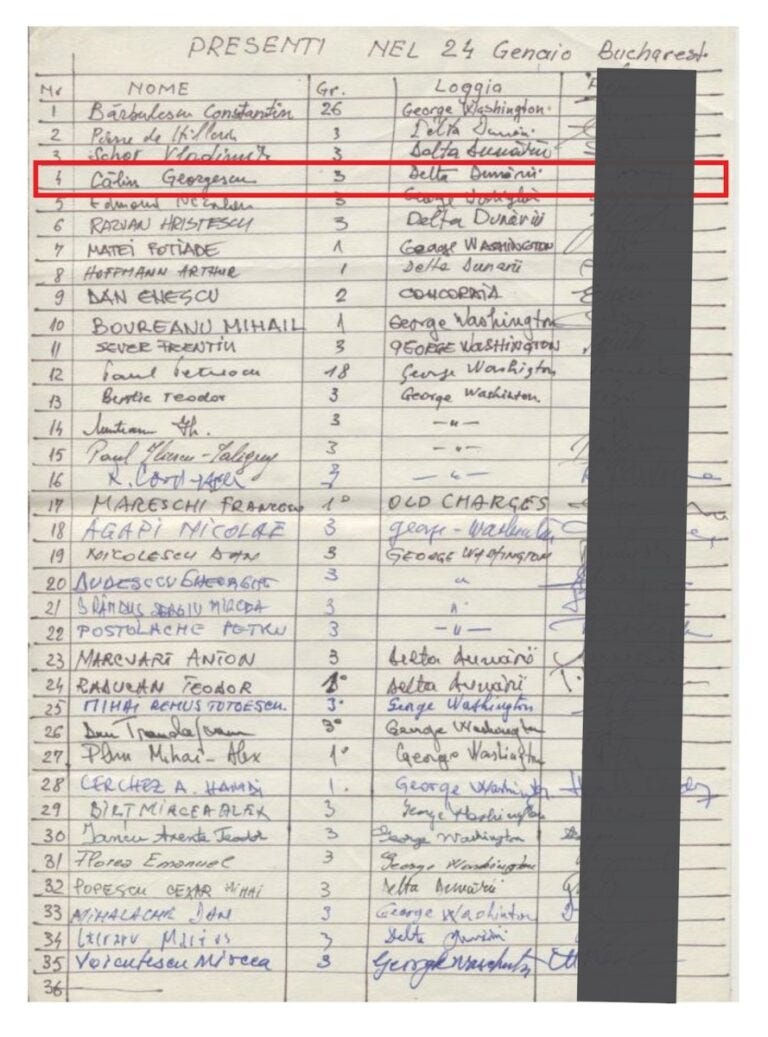 PRESENTI NEL 24 Genaio Bucharest
Nr NOME Gr. Loggia
1 Bărbulescu Constantin 26 George Washington.
2 Pierre de 3 Delta Dunării
3 Schor Vladimir 3 Delta Dunării
4 Călin Georgescu 3 Delta Dunării
5 Edmond 3 George Washington
6 RAZVAN HRISTESCU 3 Delta Dunării
7 MATEI FOTIADE 1 George WASHINGTON
8 HOFFMANN ARTHUR 1 Delta Dunarii
9 DAN ENESCU 2 CONCORDIA
10 BOUREANU MIHAIL 1 George Washington
11 SEVER FRENTIU 3 GEORGE WASHINGTON
12 Paul 18 George Washigton
13 Teodor 3 George Washinton.
14 Th. 3 —〃—
15 Paul 3 —〃—
16 R. —〃—
17 MARESCHI 1° OLD CHARGES
18 AGAPI NICOLAE 3 george -
19 NICOLESCU DAN 3 GEORGE WASHINGTON
20 GHEORGHE 3 〃
21 MIRCEA 3 〃
22 POSTOLACHE PETRU 3 —〃—
23 MARCVART ANTON 3 Delta Dunării
24 RADUCAN TEODOR 1° Delta Dunării
25 MIHAI REMUS TOTOESCU. 3° George Washington
26 Dan 3° George Washington
27 Mihai-Alex 1° George Washington
28 CERCHEZ A. 1. George Washington
29 BIRT MIRCEA ALEX 3 George Washington
30 Iancu Axente Teodor 3 George Washington
31 Florea Emanuel 3 George Washington
32 POPESCU CEZAR MIHAI 3 Delta Dunării
33 MIHALACHE DAN 3 George Washinton
34 3 Delta Dunării
35 Voiculescu Mircea 3 George
36